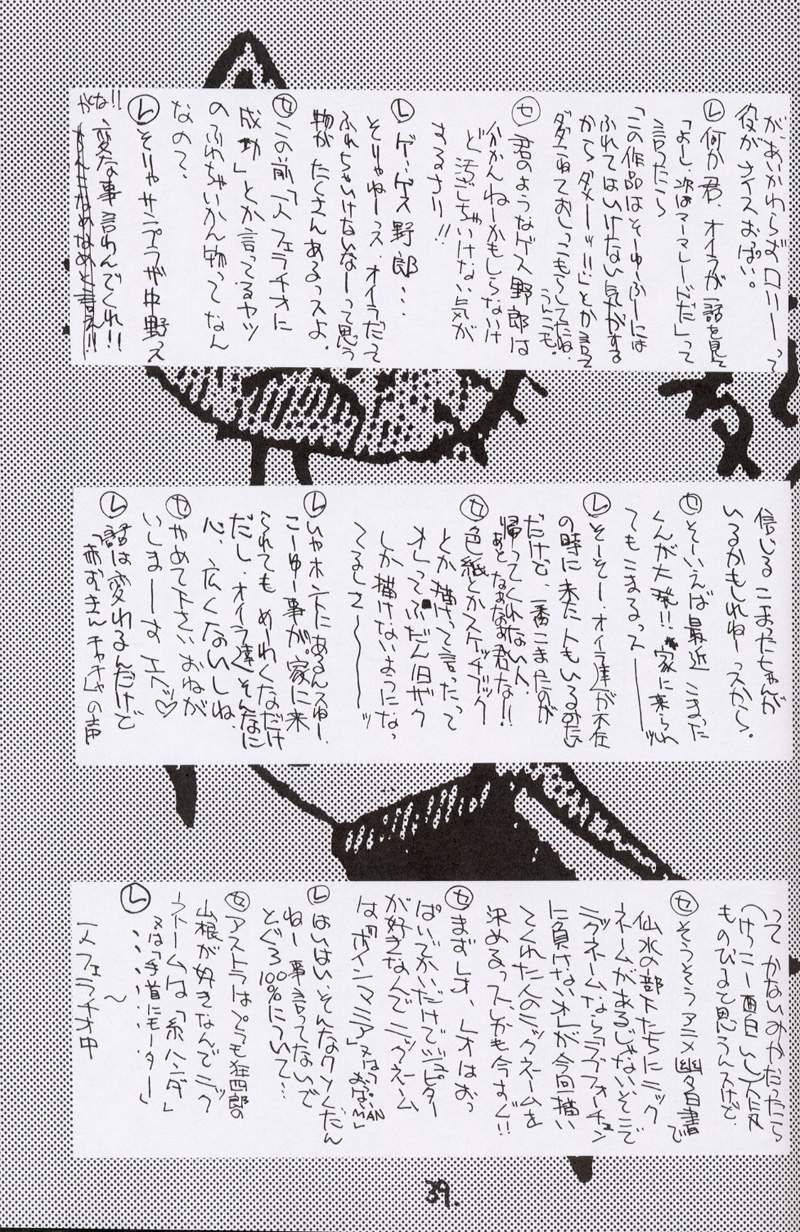 があいかわらずロリーって
役がナイスおぱい。
Ⓛ何か君、オイラが「話を見て
「よし、次はマーマレードだ」って
言ったら
「この作品はそーゆーふーには
ふれてはいけない気がする
からダメーッ!!」とか言って
ダダこねておしっこもらしてたね。
うんこも。
Ⓢ君のようなゲス野郎は
かかんねーかもしらないけ
ど汚しちゃいけない気が
するさり!!
Ⓛゲ、ゲス野郎…
そりゃねーっス、オイラだって
ふれちゃいけないなーって思う
物がたくさんあるっスよ。
Ⓢこの前「一人フェラチオに
成功」とか言ってるヤツ
のふれちゃいかん物ってなん
なの?
Ⓛそりゃサンプラザ中野っス
がな!!
変な事言わんでくれ!!
信じるこまったちゃんが
いるかもしれねーっスから。
Ⓢそーいえば最近こまった
くんが大発!!家に来られ
てもこまるっスーーッ
Ⓛそーそー、オイラ達が不在
の時に来た人もいるみたい
だけど、一番こまったのが
帰ってくれない人、
あとなぁなぁな君なー!!
Ⓢ色紙とかスケッチブック
とか描けって言ったって
オレってふだん旧ザク
しか描けないようにな
てるしさーーーーッ
Ⓛいやホントにあるんスゆー、
こーゆー事が。家に来
られてもめーわくなだけ
だし、オイラ達そんなに
心、広くないしね。
Ⓢやめて下さいおねが
いしまーすエヘ♡
Ⓛ話は変わるんだけど
「赤ずきんチャチャ」の声
ってかないみかだったら
(けっこー面白いし)人気
ものびるて思うんスけど。
Ⓢそうそうアニメ幽白書で
仙水の部下たちにニック
ネームがあるじゃないそこで
ニックネームならラブフォーチュン
に負けないオレが今回描い
てくれた人のニックネームを
決めるっスしかも今すぐ!!
Ⓢまずレオ、レオはおっ
ぱいでかいだけでジュピター
が好きなんでニックネーム
は「ボインマニア」又は「おっぱいMAN」
Ⓛはいはい、そんなクソくだん
ねー事言ってないで
とぐろ100%について…
Ⓢアストラはプラモ狂四郎の
山根が好きなんでニック
ネームは「糸ハンダ」
又は「手首にモーター」
Ⓛ……
一人フェラチオ中
〜
39.